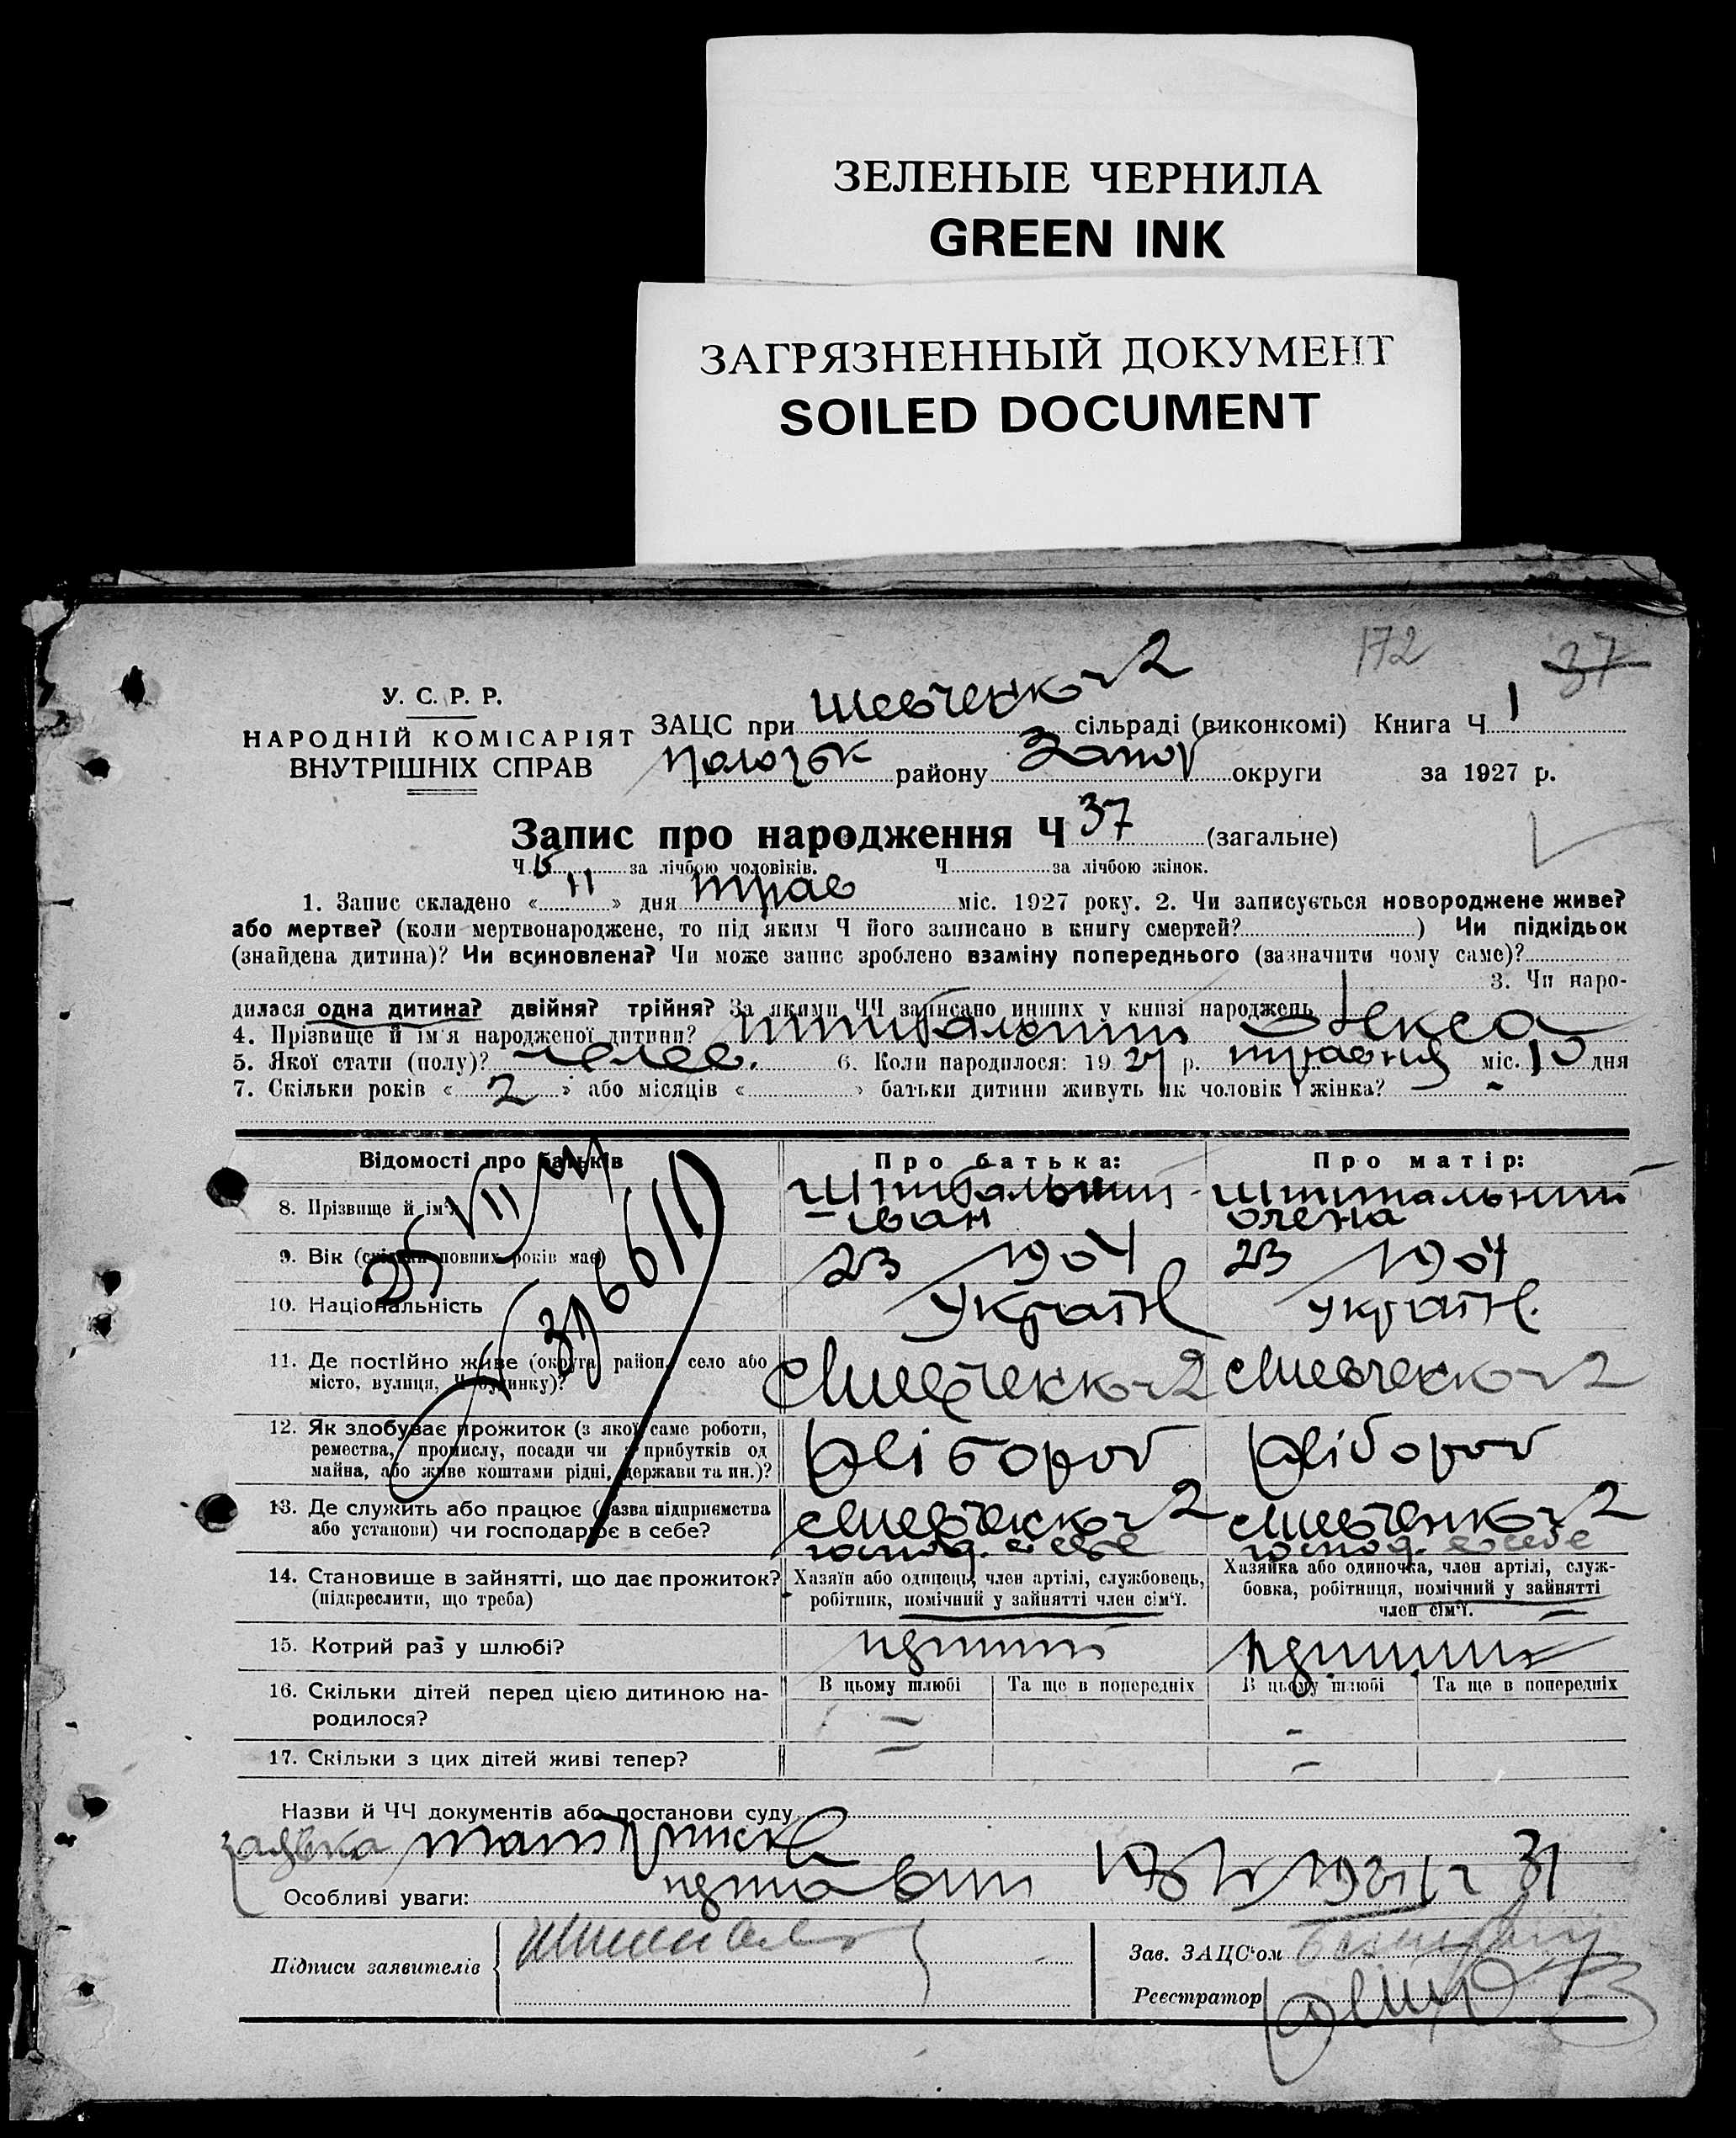 ЗЕЛЕНЫЕ ЧЕРНИЛА
GREEN INK
ЗАГРЯЗНЕННЫЙ ДОКУМЕНТ
SOILED DOCUMENT
172 37
У. С. Р. Р.
НАРОДНІЙ КОМІСАРІЯТ
ВНУТРІШНІХ СПРАВ
ЗАЦС при Шевченко 2 сільраді (виконкомі) Книга Ч 1
району Запор округи за 1927 р.
Запис про народження Ч 37 (загальне)
Ч 15 за лічбою чоловіків. Ч за лічбою жінок.
1. Запис складено « 11 » дня трав міс. 1927 року. 2. Чи записується новороджене живе?
або мертве? (коли мертвонароджене, то під яким Ч його записано в книгу смертей? ) Чи підкідьок
(знайдена дитина)? Чи всиновлена? Чи може запис зроблено взаміну попереднього (зазначити чому саме)?
3. Чи наро-
дилася одна дитина? двійня? трійня? За якими ЧЧ записано инших у книзі народжень
4. Прізвище й ім'я народженої дитини?
5. Якої стати (полу)? 6. Коли народилося: 19 27 р. травня міс. 10 дня
7. Скільки років « 2 » або місяців « » батьки дитини живуть як чоловік і жінка? -
Відомості про батьків
Про батька:
Про матір:
8. Прізвище й ім'я
Іван
Олена
9. Вік (скільки повних років має)
23 1904
23 1904
10. Національність
Україн
Україн.
11. Де постійно живе (округа, район, село або
місто, вулиця, Ч будинку)?
с Шевченко 2
с Шевченко 2
12. Як здобуває прожиток (з якої саме роботи,
ремества, промислу, посади чи з прибутків од
майна, або живе коштами рідні, держави та ин.)?
Хлібороб
Хлібороб
13. Де служить або працює (назва підприємства
або установи) чи господарює в себе?
с Шевченко 2
господ. в себе
с Шевченко 2
господ. в себе
14. Становище в зайнятті, що дає прожиток?
(підкреслити, що треба)
Хазяїн або одинець, член артілі, службовець,
робітник, помічний у зайнятті член сім'ї.
Хазяйка або одиночка, член артілі, служ-
бовка, робітниця, помічний у зайнятті
член сім'ї.
15. Котрий раз у шлюбі?
16. Скільки дітей перед цією дитиною на-
родилося?
В цьому шлюбі Та ще в попередніх
В цьому шлюбі Та ще в попередніх
17. Скільки з цих дітей живі тепер?
Назви й ЧЧ документів або постанови суду
Особливі уваги:
Підписи заявителів
Зав. ЗАЦС'ом
Реєстратор